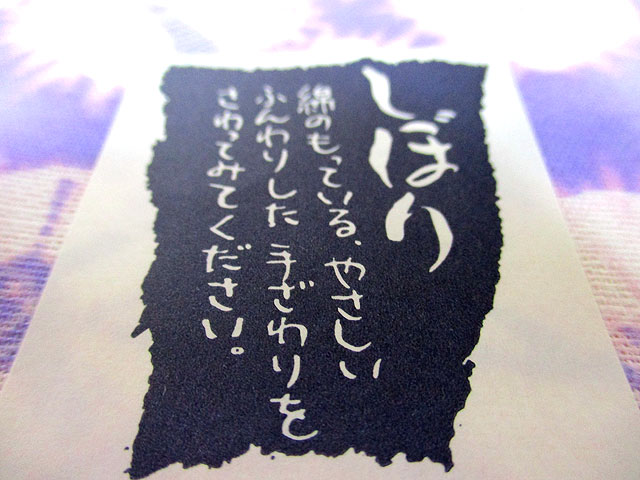 しぼり
綿のもっている、やさしい
ふんわりした手ざわりを
さわってみてください。